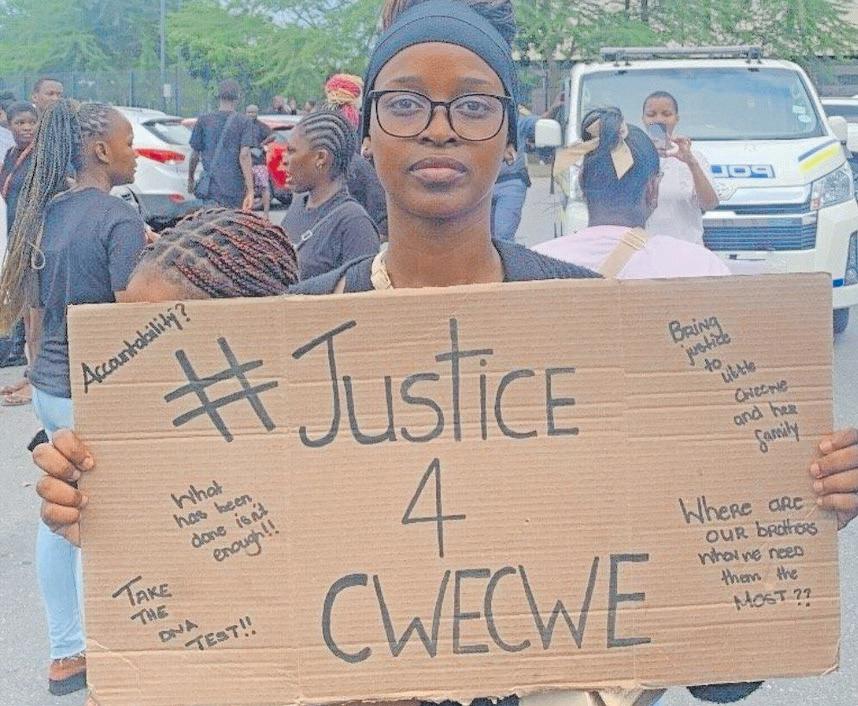 Accountability?
#Justice
4
CWECWE
Bring
justice
to
little
Cwecwe
and her
family
What
has been
done isn't
enough!!
TAKE
THE
DNA
TEST!!
Where are
our brothers
when we need
them the
MOST??